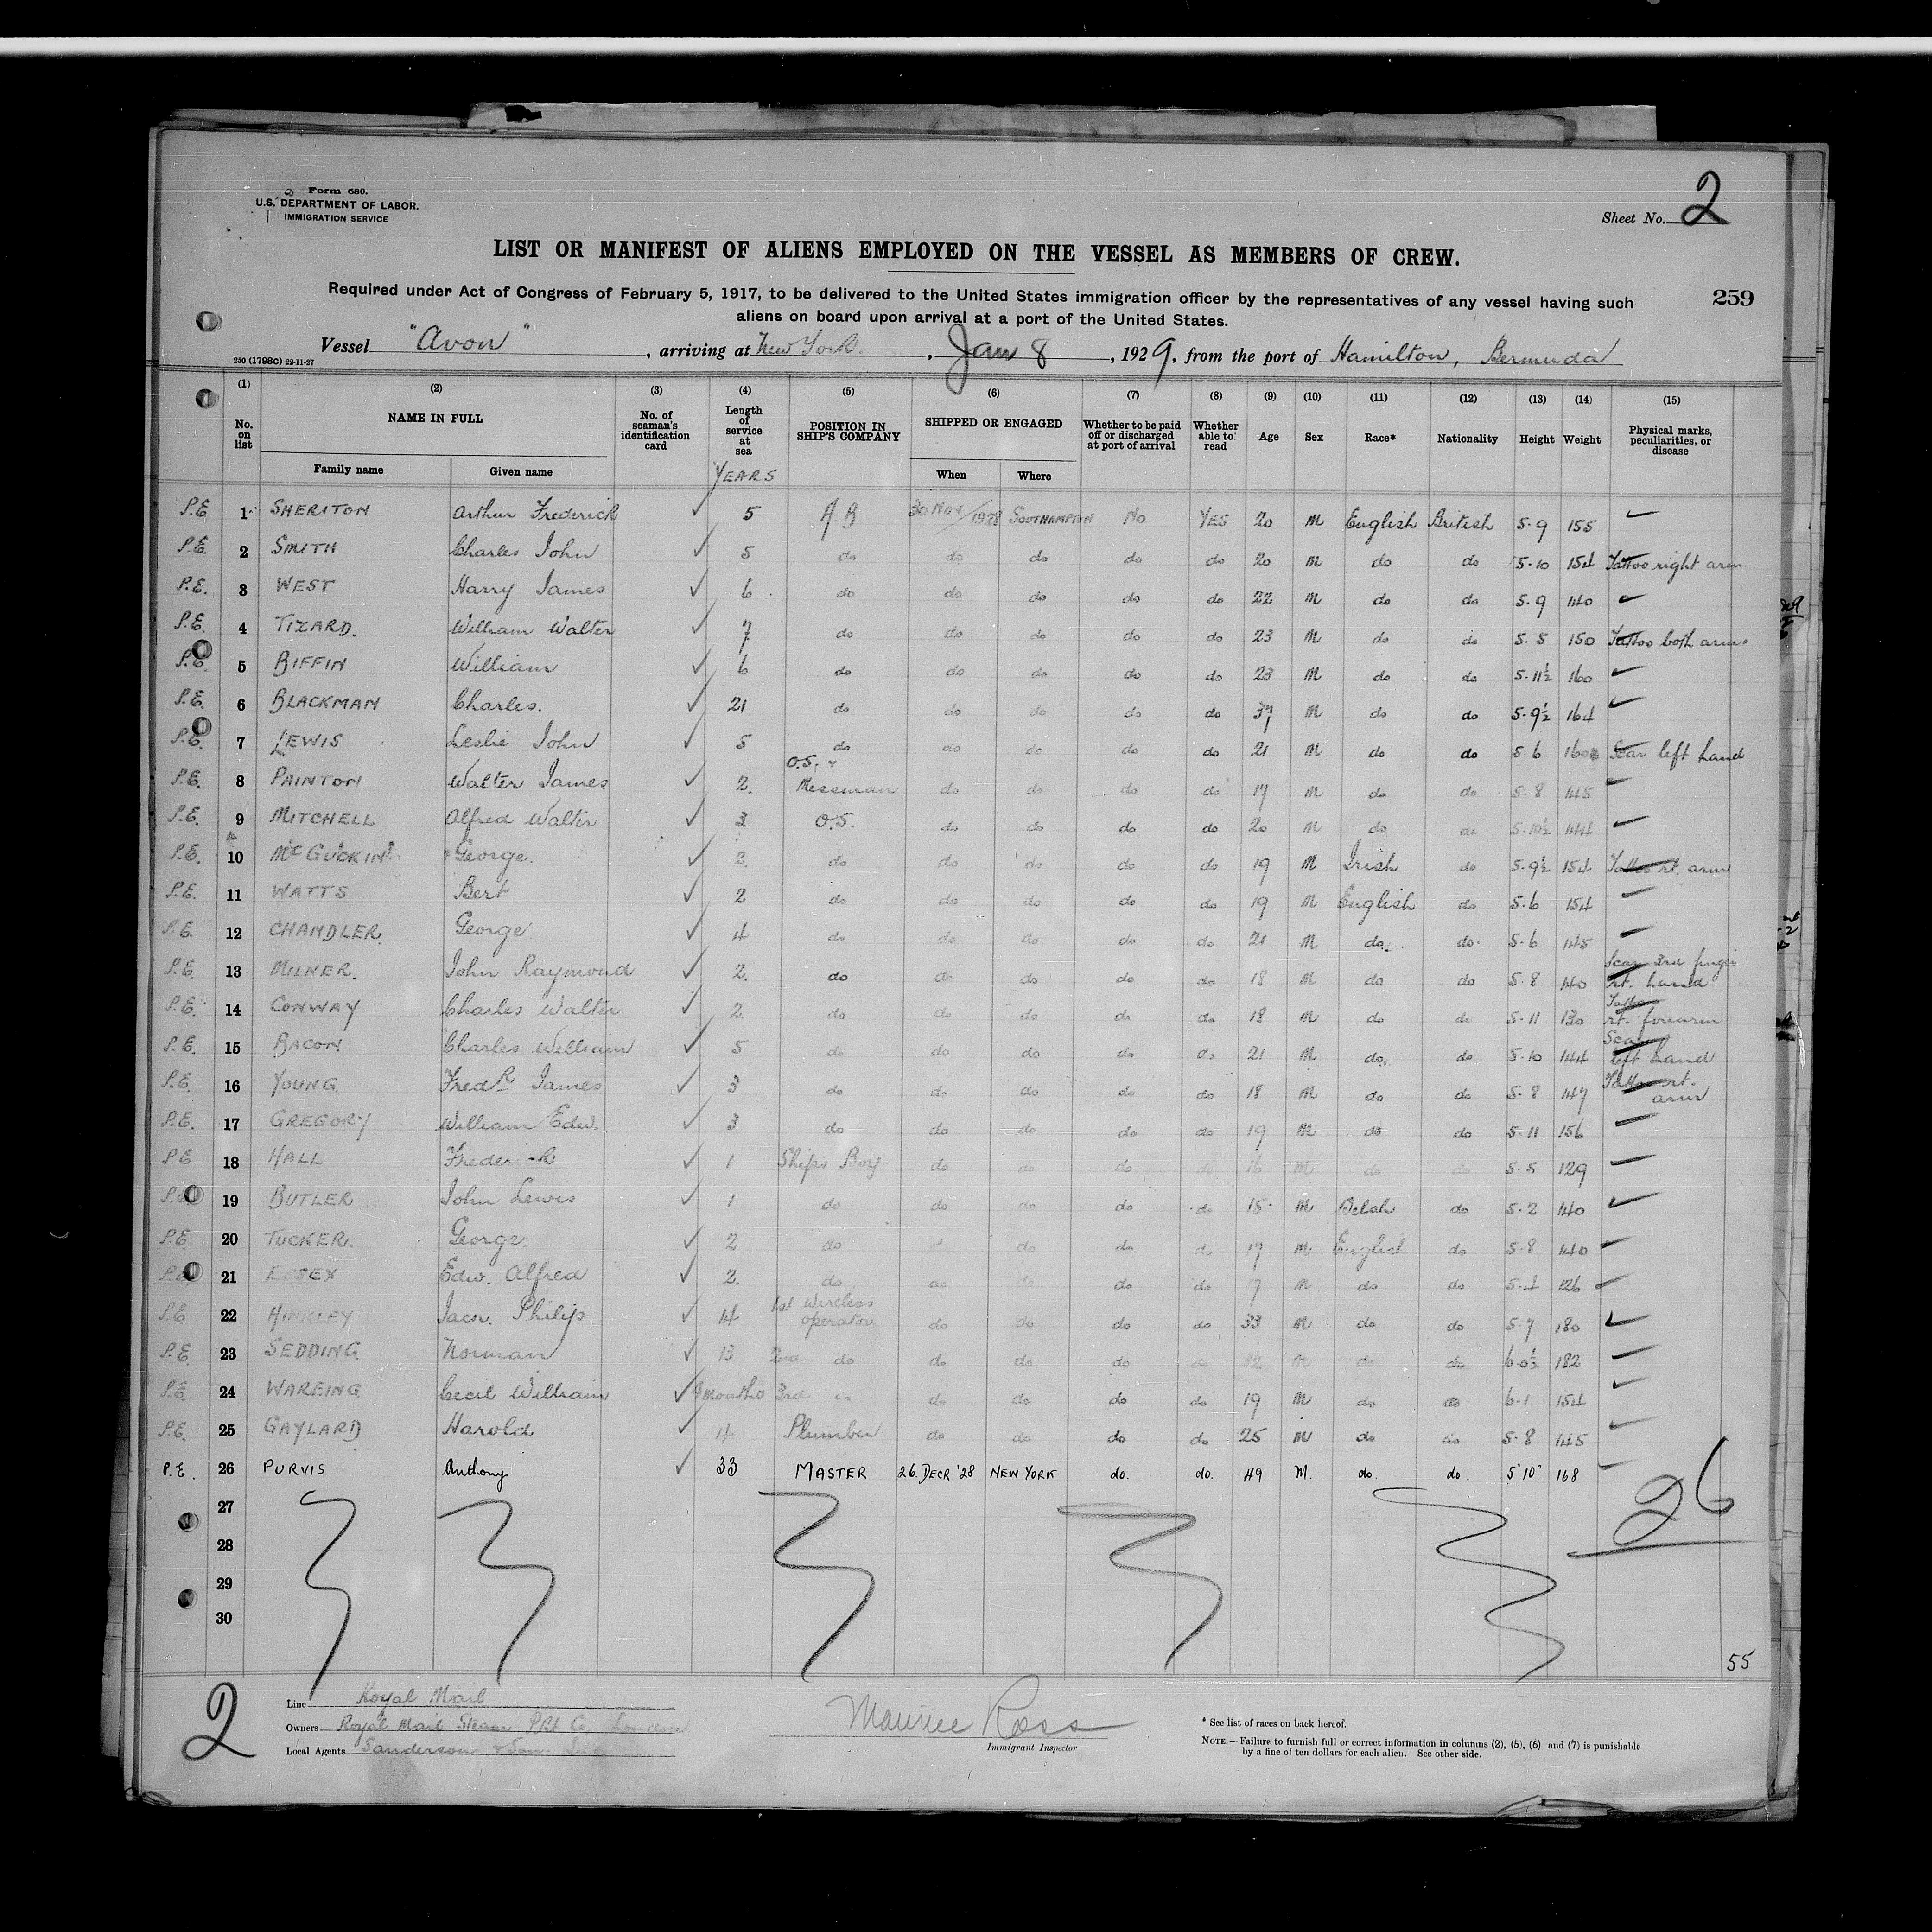 Form 680.
U.S. DEPARTMENT OF LABOR.
IMMIGRATION SERVICE
Sheet No. 2
LIST OR MANIFEST OF ALIENS EMPLOYED ON THE VESSEL AS MEMBERS OF CREW.
Required under Act of Congress of February 5, 1917, to be delivered to the United States immigration officer by the representatives of any vessel having such
aliens on board upon arrival at a port of the United States.
259
Vessel "Avon", arriving at New York., Jan 8, 1929, from the port of Hamilton, Bermuda
250 (1798C) 22-11-27
(1) (2) (3) (4) (5) (6) (7) (8) (9) (10) (11) (12) (13) (14) (15)
No. on list NAME IN FULL No. of seaman's identification card Length of service at sea POSITION IN SHIP'S COMPANY SHIPPED OR ENGAGED Whether to be paid off or discharged at port of arrival Whether able to read Age Sex Race* Nationality Height Weight Physical marks, peculiarities, or disease
Family name Given name YEARS When Where
P.E 1 SHERITON Arthur Frederick ✓ 5 A.B 30 Nov/1928 SOUTHAMPTON No YES 20 M English British 5.9 155 ✓
P.E. 2 SMITH Charles John ✓ 5 do do do do do 20 M do do 5.10 154 Tattoo right arm
P.E. 3 WEST Harry James ✓ 6 do do do do do 22 M do do 5.9 140 ✓
P.E. 4 TIZARD. William Walter ✓ 7 do do do do do 23 M do do 5.5 150 Tattoo both arms
P.E. 5 BIFFIN William ✓ 6 do do do do do 23 M do do 5.11½ 160 ✓
P.E. 6 BLACKMAN Charles. ✓ 21 do do do do do 37 M do do 5.9½ 164 ✓
P.E. 7 LEWIS Leslie John ✓ 5 do do do do do 21 M do do 5 6 160 Scar left hand
P.E. 8 PAINTON Walter James ✓ 2. O.S. & Messman do do do do 17 M do do 5.8 145 ✓
P.E. 9 MITCHELL Alfred Walter ✓ 3 O.S. do do do do 20 M do do 5.10½ 144 ✓
P.E. 10 McGUCKIN George. ✓ 2. do do do do do 19 M Irish do 5.9½ 154 Tattoo rt. arm
P.E. 11 WATTS Bert ✓ 2 do do do do do 19 M English do 5.6 154 ✓
P.E. 12 CHANDLER. George ✓ 4 do do do do do 21 M do. do. 5.6 145 ✓
P.E. 13 MILNER. John Raymond ✓ 2. do do do do do 18 M do do 5.8 140 Scar 3rd finger rt. hand
P.E. 14 CONWAY Charles Walter ✓ 2. do do do do do 18 M do do 5.11 130 Tattoo rt. forearm
P.E. 15 BACON Charles William ✓ 5 do do do do do 21 M do. do 5.10 144 Scar left hand
P.E. 16 YOUNG Fredk James ✓ 3 do do do do do 18 M do do 5.8 147 Tattoo rt. arm
P.E. 17 GREGORY William Edw. ✓ 3 do do do do do 19 M do do 5.11 156 ✓
P.E 18 HALL Frederick ✓ 1 Ship's Boy do do do do 16 M do do 5.5 129 ✓
P.E 19 BUTLER John Lewis ✓ 1 do do do do do 15 M Welsh do 5.2 140 ✓
P.E. 20 TUCKER. George. ✓ 2 do do do do 17 M English do 5.8 140 ✓
P.E 21 ESSEX Edw. Alfred ✓ 2. do do do do do 17 M do do 5.4 126 ✓
P.E 22 Philip ✓ 14 1st wireless operator do do do do 33 M do do 5.7 180 ✓
P.E. 23 SEDDING Norman ✓ 13 2nd do do do do do 32 M do do 6.0½ 182 ✓
P.E. 24 WAREING Cecil William ✓ 9 months 3rd do do do do do 19 M do do 6.1 154 ✓
P.E. 25 GAYLARD Harold ✓ 4 Plumber do do do do 25 M do do 5.8 145 ✓
P.E. 26 PURVIS Anthony ✓ 33 MASTER 26 DECR '28 NEW YORK do. do. 49 M. do. do. 5'10" 168 ✓
27
28
29
30
26
55
2
Line Royal Mail
Owners Royal Mail Steam Pkt Co, London
Local Agents Sanderson & Son. Inc
Maurice Ross
Immigrant Inspector
* See list of races on back hereof.
NOTE.—Failure to furnish full or correct information in columns (2), (5), (6) and (7) is punishable
by a fine of ten dollars for each alien. See other side.